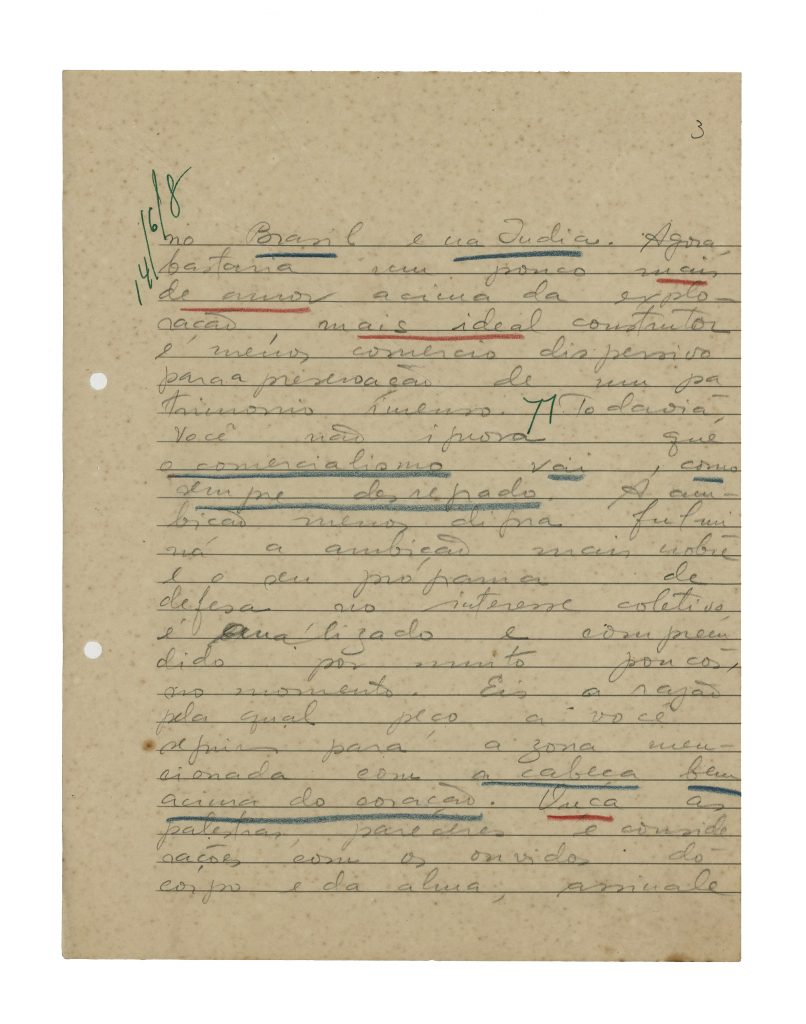 3
14/6/8
no Brasil e na India. Agora,
bastaria um pouco mais
de amor acima da explo-
ração mais ideal construtor
e menos comercio dispersivo
para a preservação de um pa
trimonio imenso. Todavia
Você não ignora que
o comercialismo vai, como
sempre desregrado. A am-
bição menos digna fulmi
na a ambição mais nobre
e o seu programa de
defesa no interesse coletivo
é analizado e compreen
dido por muito poucos,
no momento. Eis a razão
pela qual peço a você
seguir para a zona men-
cionada com a cabeça bem
acima do coração. Ouça as
palestras, pareceres e conside
rações com os ouvidos do
corpo e da alma, assinale